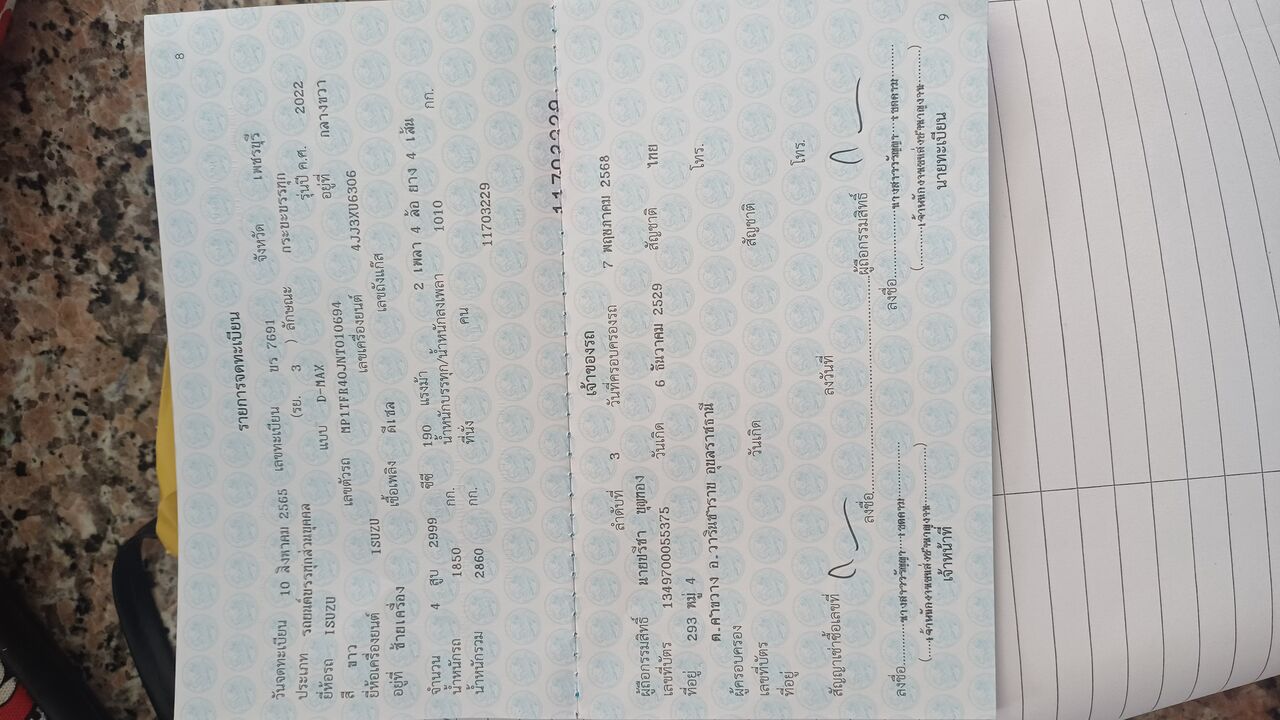 8
รายการจดทะเบียน
วันจดทะเบียน 10 สิงหาคม 2565 เลขทะเบียน ขร 7691 จังหวัด เพชรบุรี
ประเภท รถยนต์บรรทุกส่วนบุคคล (รย. 3 ) ลักษณะ กระบะบรรทุก
ยี่ห้อรถ ISUZU แบบ D-MAX รุ่นปี ค.ศ. 2022
สี ขาว เลขตัวรถ MP1TFR40JNT010694 อยู่ที่ กลางขวา
ยี่ห้อเครื่องยนต์ ISUZU เลขเครื่องยนต์ 4JJ3XU6306
อยู่ที่ ซ้ายเครื่อง เชื้อเพลิง ดีเซล เลขถังแก๊ส
จำนวน 4 สูบ 2999 ซีซี 190 แรงม้า 2 เพลา 4 ล้อ ยาง 4 เส้น
น้ำหนักรถ 1850 กก. น้ำหนักบรรทุก/น้ำหนักลงเพลา 1010 กก.
น้ำหนักรวม 2860 กก. ที่นั่ง คน
11703229
11703229
เจ้าของรถ
ลำดับที่ 3 วันที่ครอบครองรถ 7 พฤษภาคม 2568
ผู้ถือกรรมสิทธิ์ นายปรีชา บุญทอง
เลขที่บัตร 1349700055375 วันเกิด 6 ธันวาคม 2529 สัญชาติ ไทย
ที่อยู่ 293 หมู่ 4 โทร.
ต.คำขวาง อ.วารินชำราบ อุบลราชธานี
ผู้ครอบครอง
เลขที่บัตร วันเกิด สัญชาติ
ที่อยู่ โทร.
สัญญาเช่าซื้อเลขที่ ลงวันที่
ลงชื่อ ผู้ถือกรรมสิทธิ์
ลงชื่อ ลงชื่อ
เจ้าหน้าที่ นายทะเบียน
9